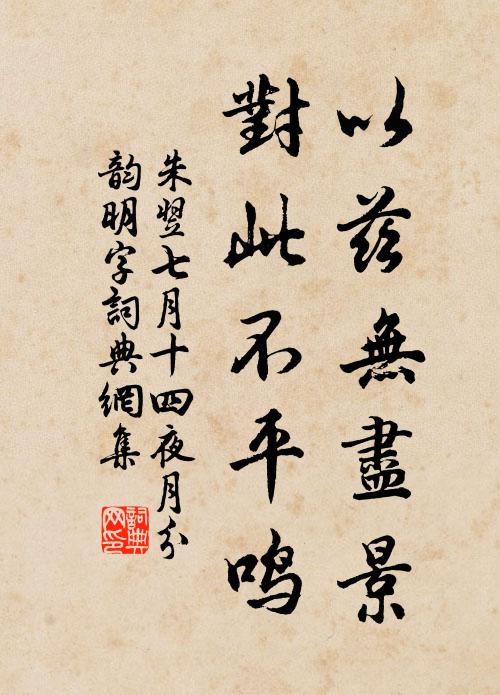 以茲無盡景
對此不平鳴
朱翌七月十四夜月分
韵明字詞典網集
詞典網印